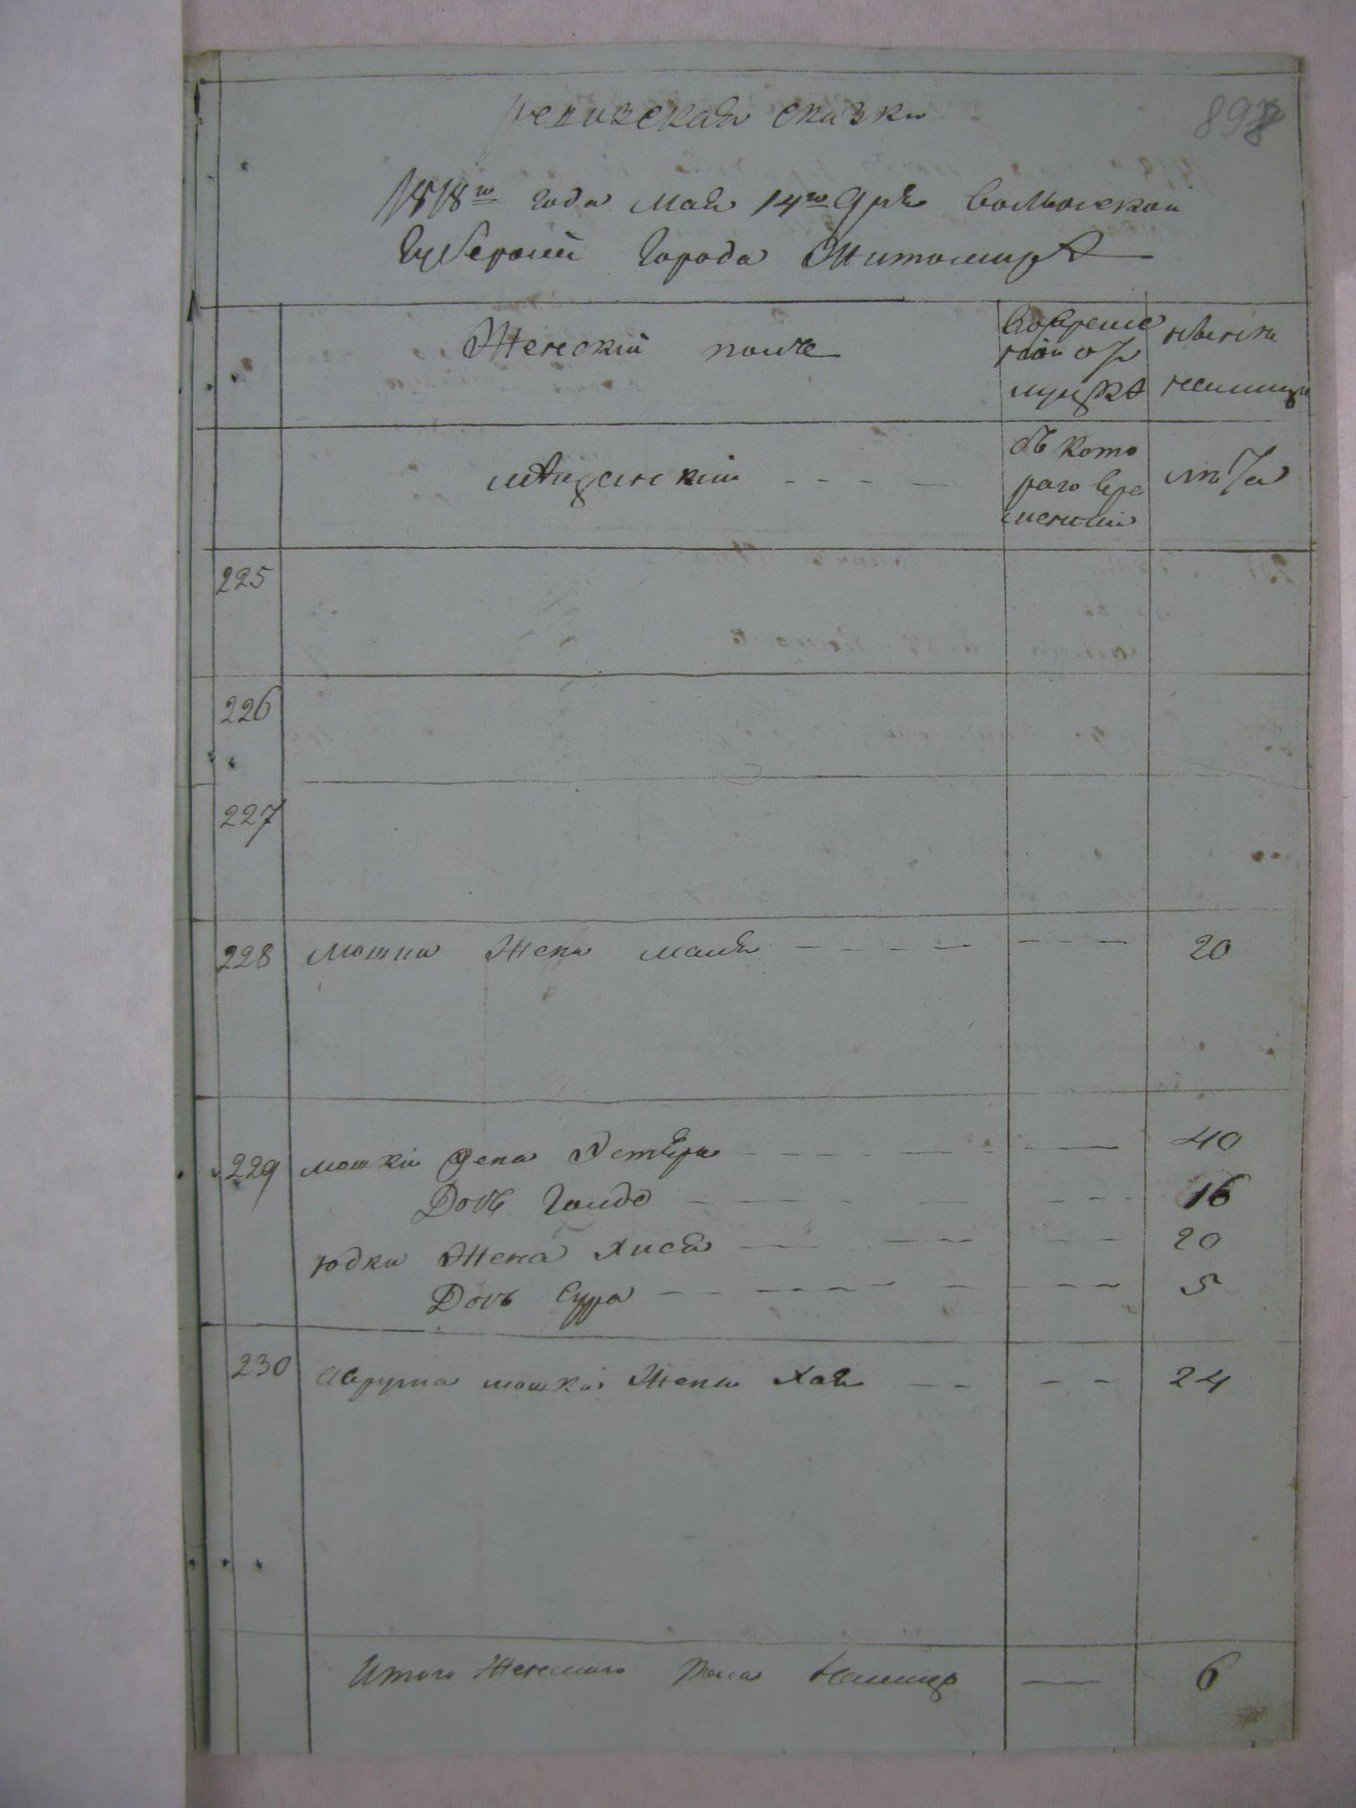 ревизская сказка
898
1818го года мая 14го дня волынской
Губернии Города Житомира
Женский полъ
Во временной отлучке
ныне на лицо
мещанский
съ которого времени
лета
225
226
227
228 Мошки Жена маля 20
229 мошки Жена Эстера 40
Дочь Голда 16
юдки Жена Хися 20
Дочь Сура 5
230 Аврума мошки Жена Хая 24
Итого Женского пола налицо 6